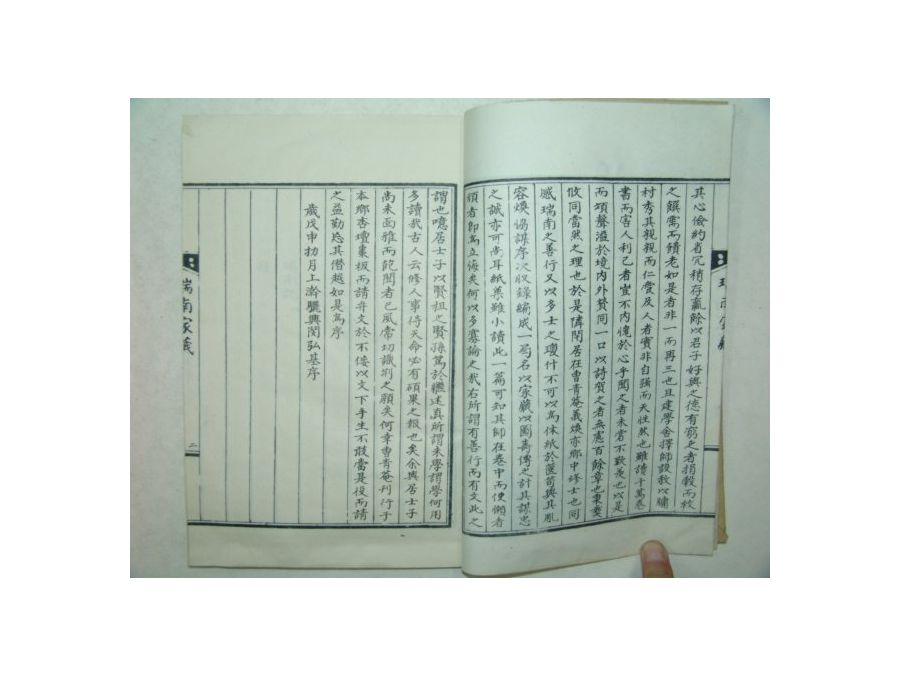 其心儉約省冗稍存贏餘以君子好與之德有窮乏者捐穀而救
之饌需而饋老如是者非一而再三也且建學舍擇師設教以牖
村秀其親親而仁愛及人者實非自强而天性然也雖讀十萬卷
書而害人利己者豈不內愧於心乎聞之者未嘗不歎羨也以是
而頌聲溢於境內外贊同一口以詩賀之者無慮百餘章也秉彛
攸同當然之理也於是隣閈居在曺青菴義煥亦鄉中修士也同
感瑞南之善行又以多士之瓊什不可以爲休紙於篋笥與其胤
容煥協謀序次收錄編成一局名以家藏以圖壽傳之計其謀忠
之誠亦可尚耳紙葉雖小讀此一篇可知其師在卷中而使懶者
頑者卽爲立悔矣何以多寡論之哉右所謂有善行而有文此之
謂也噫居士子以賢祖之賢孫篤於繼述眞所謂未學謂學何用
多讀我古人云修人事待天命必有碩果之報也矣余與居士子
尚未面雅而飽聞者已風常切識荊之願矣何幸曺青菴刊行于
本鄉杏壇棗板而請弁文於不佞以文下手生不敢當是役而請
之益勤忘其僭越如是爲序
歲戊申 月上澣驪興閔弘基序
瑞南家藏
二